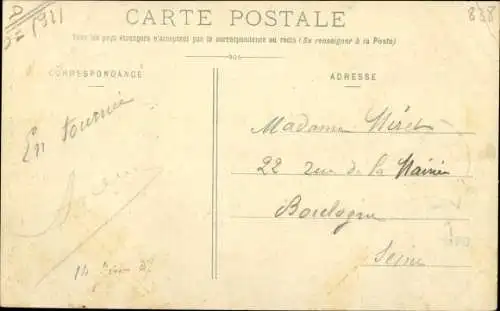 1911
838
CARTE POSTALE
Tous les pays étrangers n'acceptent pas la correspondance au recto (Se renseigner à la Poste)
CORRESPONDANCE
ADRESSE
En tournée
Madame
22 rue de la Mairie
Boulogne
Seine